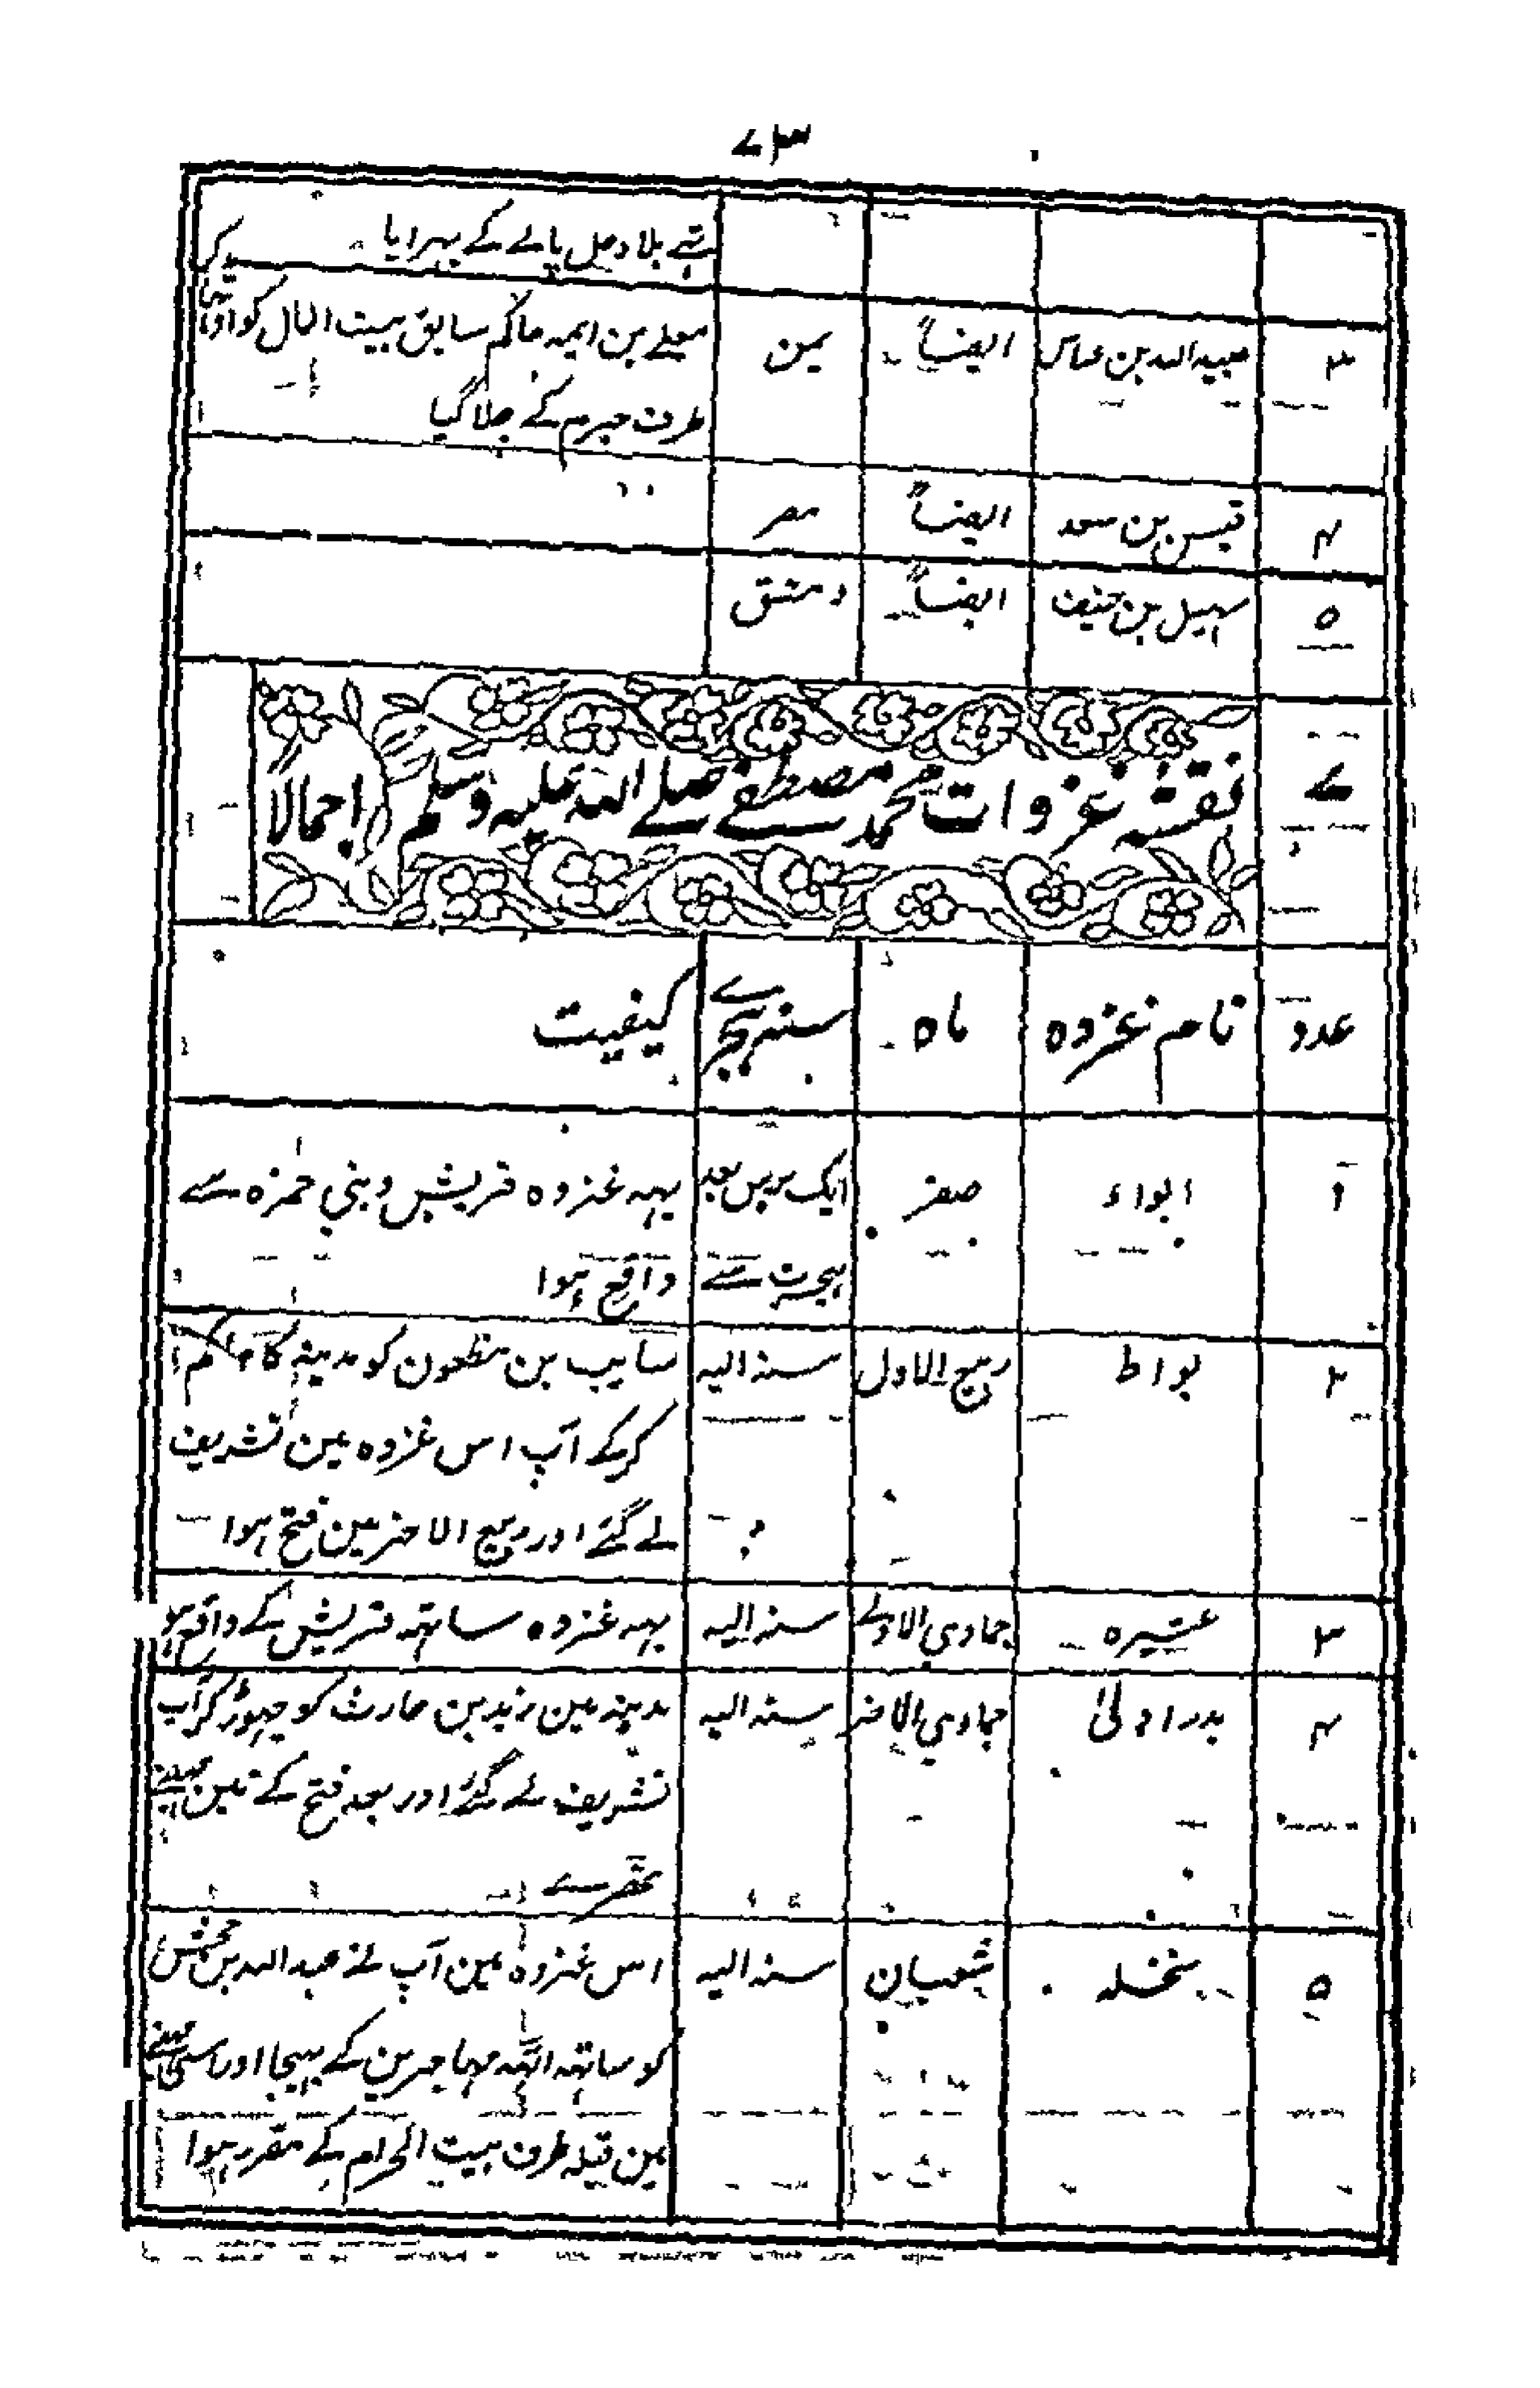 ۷۳
تہے بلا دخل پانے کے پہر ایا
۳ عبید اللہ بن عباس ایضاً یمن یعلے بن امیہ حاکم سابق بیت المال کو
طرف حیرم کے چلا گیا
۴ قیس بن سعد ایضاً مصر
۵ سہیل بن حنیف ایضاً دمشق
۷ نقشہ غزوات محمد مصطفے صلے اللہ علیہ وسلم اجمالاً
عدد نام غزوہ ماہ سنہ ہجرے کیفیت
۱ ابواء صفر ایک برس بعد یہہ غزوہ قریش و بنی حمزہ سے
ہجرت سے واقع ہوا
۲ بواط ربیع الاول سنہ الیہ سایب بن مظعون کو مدینہ کا حاکم
کرکے آپ اس غزوہ مین تشریف
لے گئے اور ربیع الاخر مین فتح ہوا
۳ عشیرہ جمادی الاولے سنہ الیہ یہہ غزوہ ساتہہ قریش کے واقع ہوا
۴ بدر اولیٰ جمادی الاخر سنہ الیہ مدینہ مین زید بن حارث کو چہوڑ کر آپ
تشریف لے گئے اور بعد فتح کے تین مہینے
ٹہرے
۵ نخلہ شعبان سنہ الیہ اس غزوہ مین آپ نے عبد اللہ بن جحش
کو ساتہہ آٹہہ مہاجرین کے بہیجا اور اسی مہینے
مین قبلہ طرف بیت الحرام کے مقرر ہوا